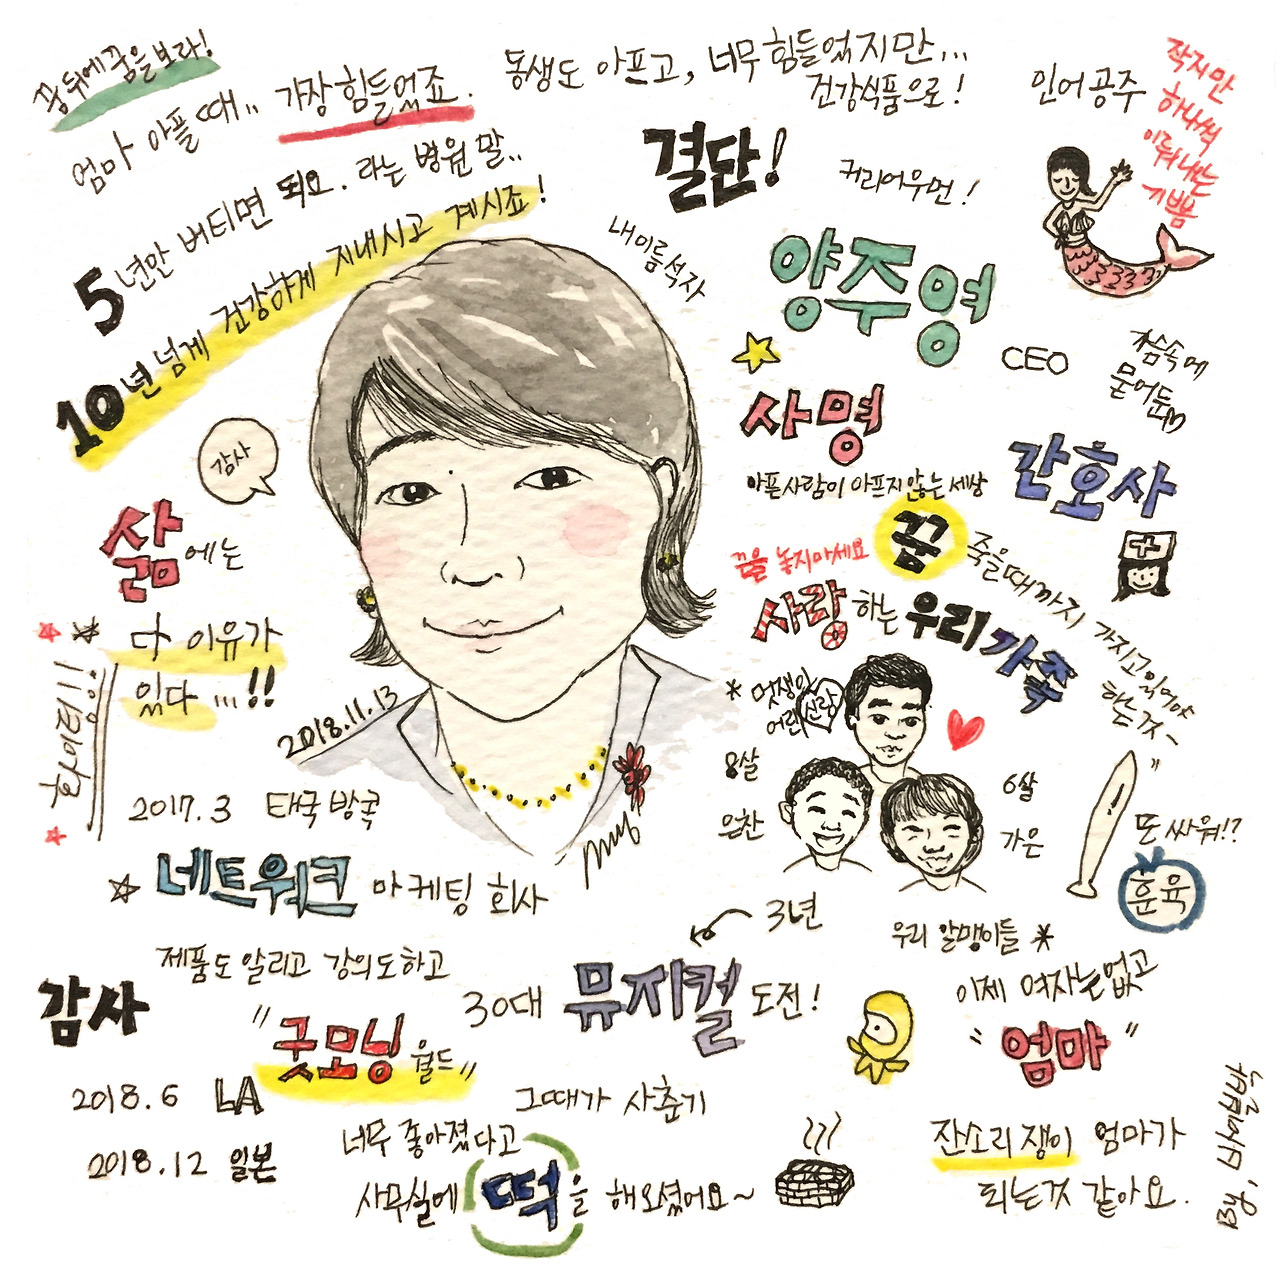 꿈 뒤에 꿈을 보라!
엄마 아플 때.. 가장 힘들었죠.
5년만 버티면 되요. 라는 병원 말..
10년 넘게 건강하게 지내시고 계시죠!
동생도 아프고, 너무 힘들었지만...
건강식품으로!
결단!
커리어우먼!
인어공주
작지만
하나씩
이뤄내는
기쁨
내 이름 석자
양주영
CEO
사명
아픈사람이 아프지 않는 세상
가슴속에
묻어둔
간호사
꿈을 놓지마세요
꿈
죽을때까지 가지고 있어야
하는 것~
사랑하는 우리 가족
* 멋쟁이
어린 신랑
8살
은찬
6살
가은
또 싸워!?
훈육
우리 알맹이들 *
감사
삶에는
다 이유가
있다...!!
화이팅!!
2018.11.13
2017.3 태국 방콕
네트워크 마케팅 회사
제품도 알리고 강의도하고
감사
"굿모닝월드"
2018.6 LA
2018.12 일본
3년
30대 뮤지컬 도전!
그때가 사춘기
너무 좋아졌다고
사무실에 떡을 해오셨어요~
이제 여자는 없고
"엄마"
잔소리쟁이 엄마가
되는것 같아요.